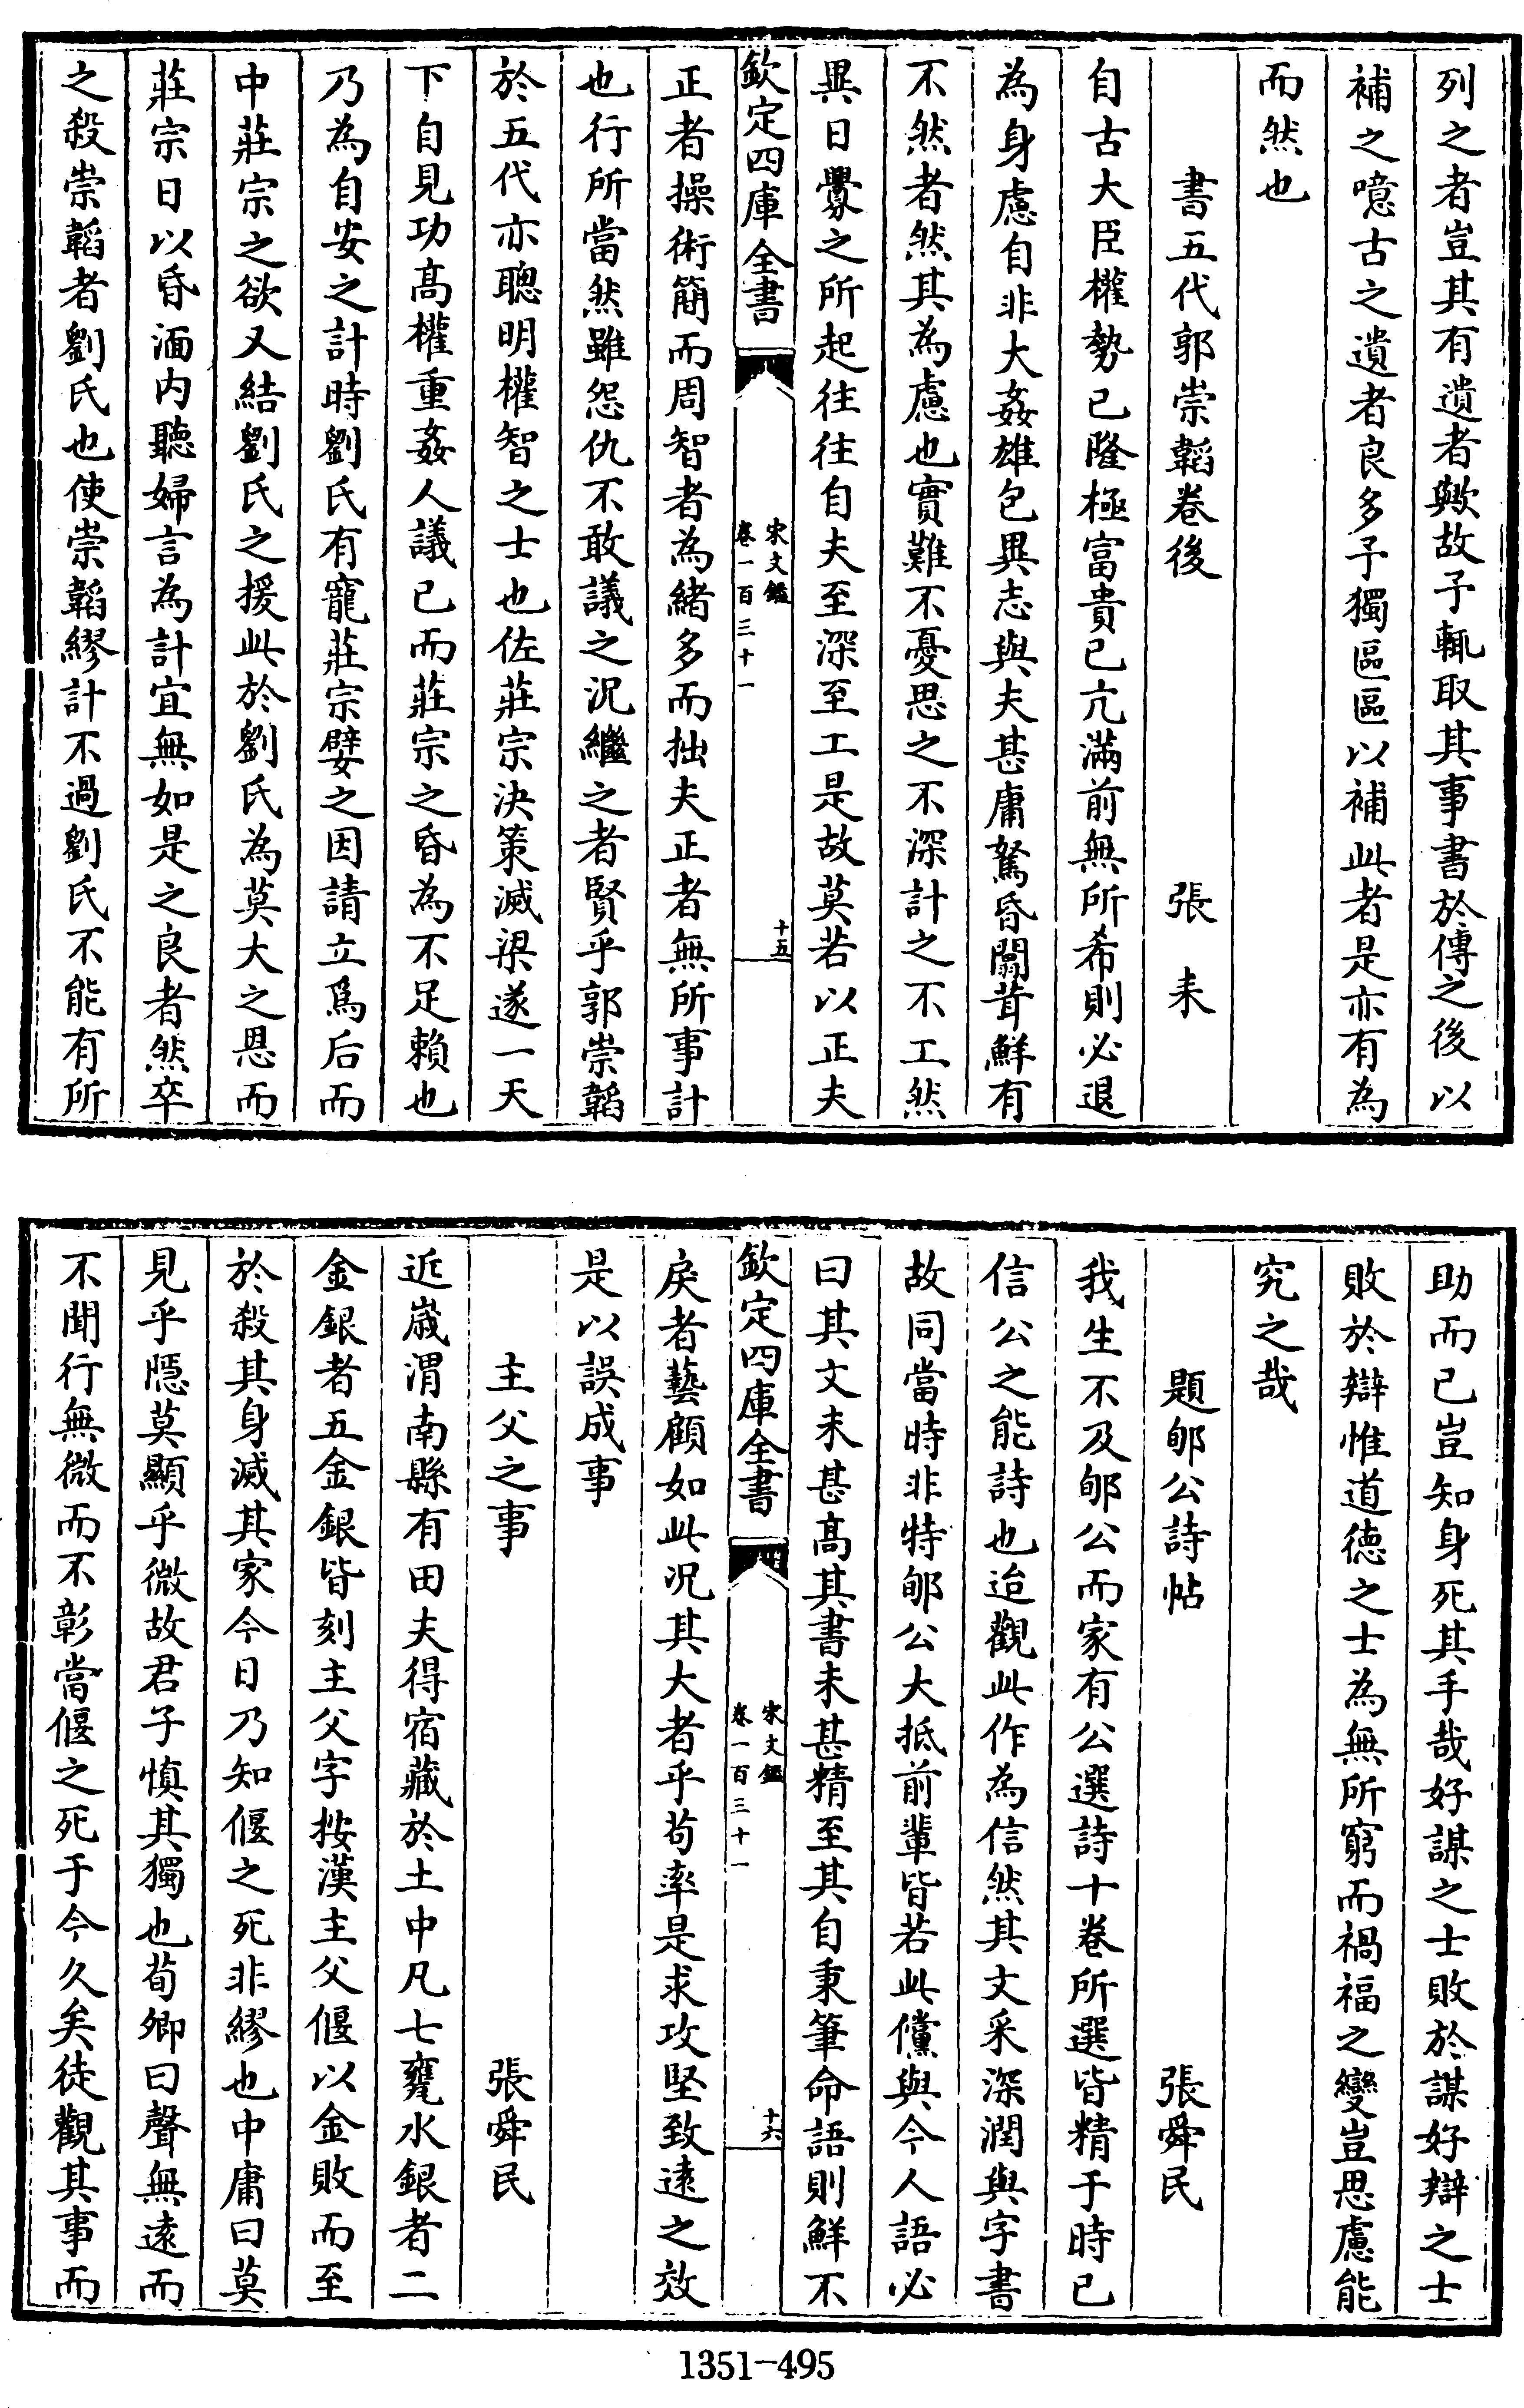 列之者豈其有遺者歟故予輒取其事書於傳之後以
補之噫古之遺者良多予獨區區以補此者是亦有為
而然也
書五代郭崇韜卷後　張耒
自古大臣權勢已隆極富貴已亢滿前無所希則必退
為身慮自非大姦雄包異志與夫甚庸駑昏闒茸鮮有
不然者然其為慮也實難不憂思之不深計之不工然
異日釁之所起往往自夫至深至工是故莫若以正夫
欽定四庫全書　宋文鑑　卷一百三十一　十五
正者操術簡而周智者為緒多而拙夫正者無所事計
也行所當然雖怨仇不敢議之況繼之者賢乎郭崇韜
於五代亦聰明權智之士也佐莊宗決策滅梁遂一天
下自見功高權重姦人議已而莊宗之昏為不足賴也
乃為自安之計時劉氏有寵莊宗嬖之因請立為后而
中莊宗之欲又結劉氏之援此於劉氏為莫大之恩而
莊宗日以昏湎内聽婦言為計宜無如是之良者然卒
之殺崇韜者劉氏也使崇韜繆計不過劉氏不能有所
助而已豈知身死其手哉好謀之士敗於謀好辯之士
敗於辯惟道徳之士為無所窮而禍福之變豈思慮能
究之哉
題郇公詩帖　張舜民
我生不及郇公而家有公選詩十卷所選皆精于時已
信公之能詩也迨觀此作為信然其文采深潤與字書
故同當時非特郇公大抵前輩皆若此儻與今人語必
曰其文未甚高其書未甚精至其自秉筆命語則鮮不
欽定四庫全書　宋文鑑　卷一百三十一　十六
戾者藝顧如此况其大者乎苟率是求攻堅致逺之效
是以誤成事
主父之事　張舜民
近嵗渭南縣有田夫得宿藏於土中凡七甕水銀者二
金銀者五金銀皆刻主父字按漢主父偃以金敗而至
於殺其身滅其家今日乃知偃之死非繆也中庸曰莫
見乎隱莫顯乎微故君子慎其獨也荀卿曰聲無逺而
不聞行無微而不彰當偃之死于今久矣徒觀其事而
1351-495